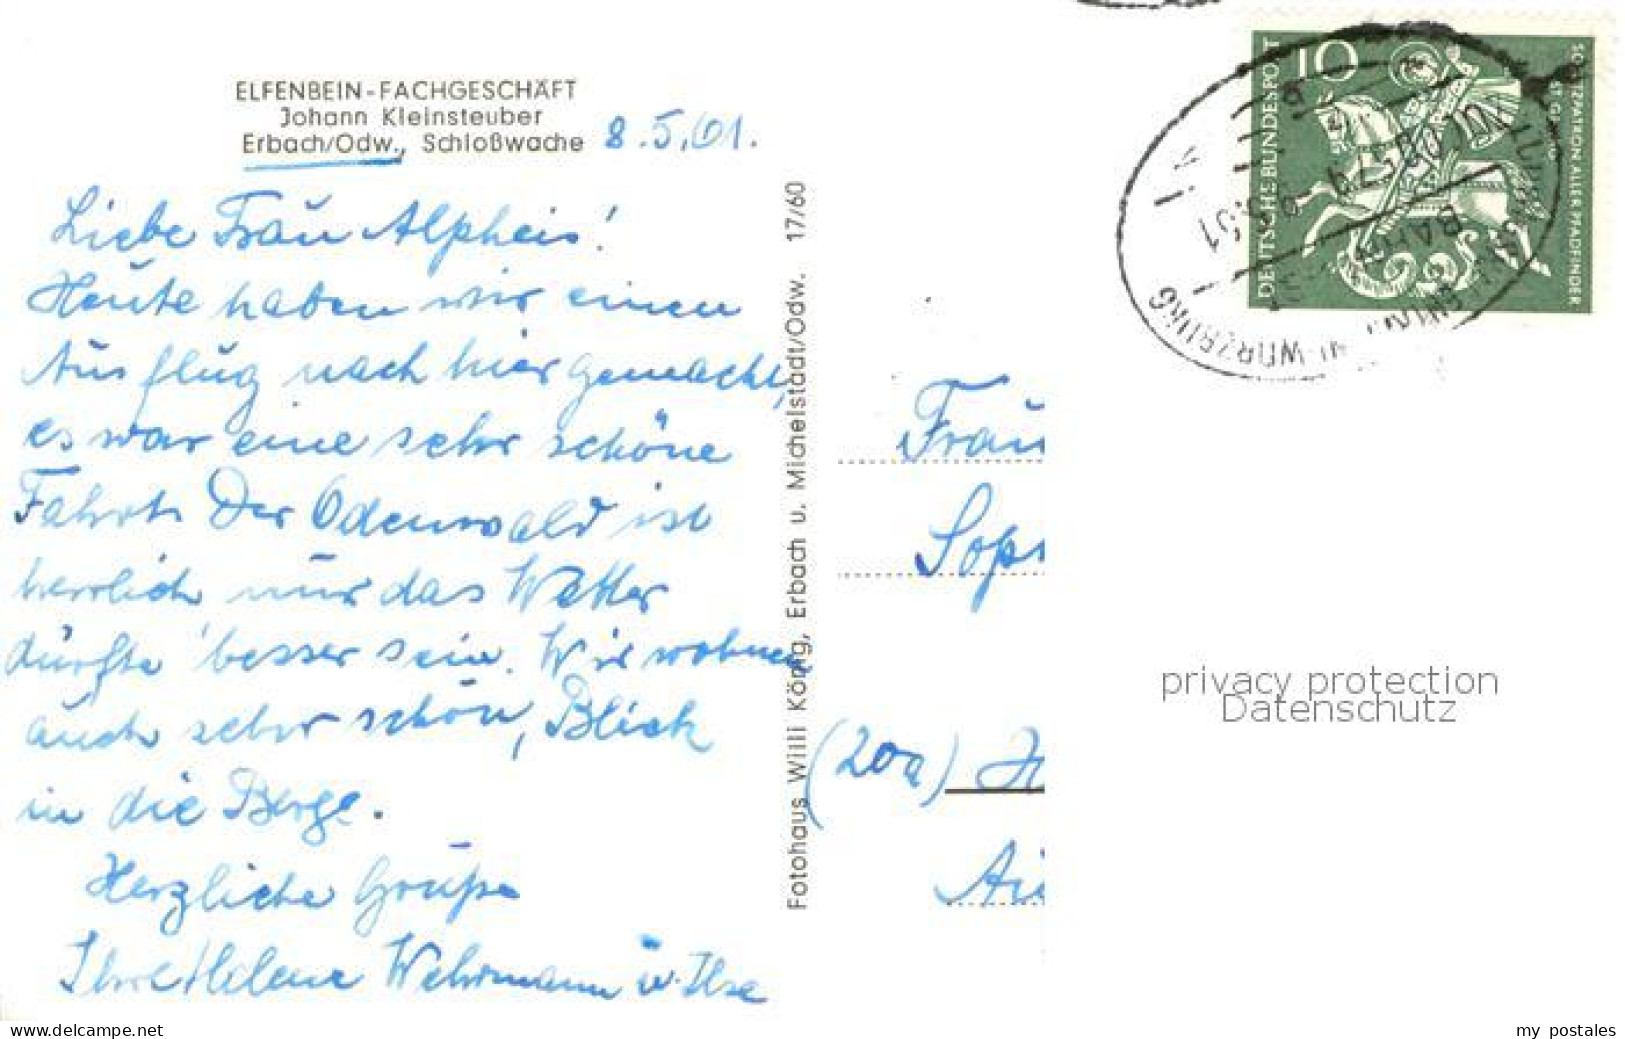 ELFENBEIN-FACHGESCHÄFT
Johann Kleinsteuber
Erbach/Odw., Schloßwache
8.5.61.
Liebe Frau Alpheis!
Heute haben wir einen
Ausflug nach hier gemacht,
es war eine sehr schöne
Fahrt. Der Odenwald ist
herrlich nur das Wetter
dürfte besser sein. Wir wohnen
auch sehr schön, Blick
in die Berge.
Herzliche Grüße
Ihre Helene Wehrmann u. Ilse
Fotohaus Willi König, Erbach u. Michelstadt/Odw. 17/60
10
DEUTSCHE BUNDESPOST
SCHUTZPATRON ALLER PFADFINDER
ST. GEORG
WÜRZBURG
Frau
Soph
(20a) H
Au
privacy protection
Datenschutz
www.delcampe.net
my postales